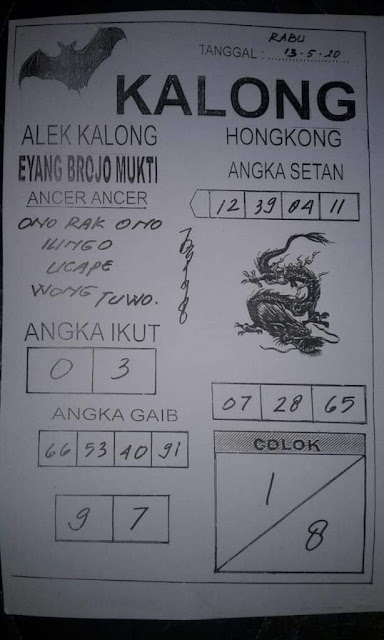 RABU
TANGGAL : 13-5-20
KALONG
ALEK KALONG
EYANG BROJO MUKTI
ANCER ANCER
ONO RAK ONO
ILINGO
UCAPE
WONG TUWO.
ANGKA IKUT
0 3
ANGKA GAIB
66 53 40 91
9 7
HONGKONG
ANGKA SETAN
12 39 04 11
07 28 65
COLOK
1
8